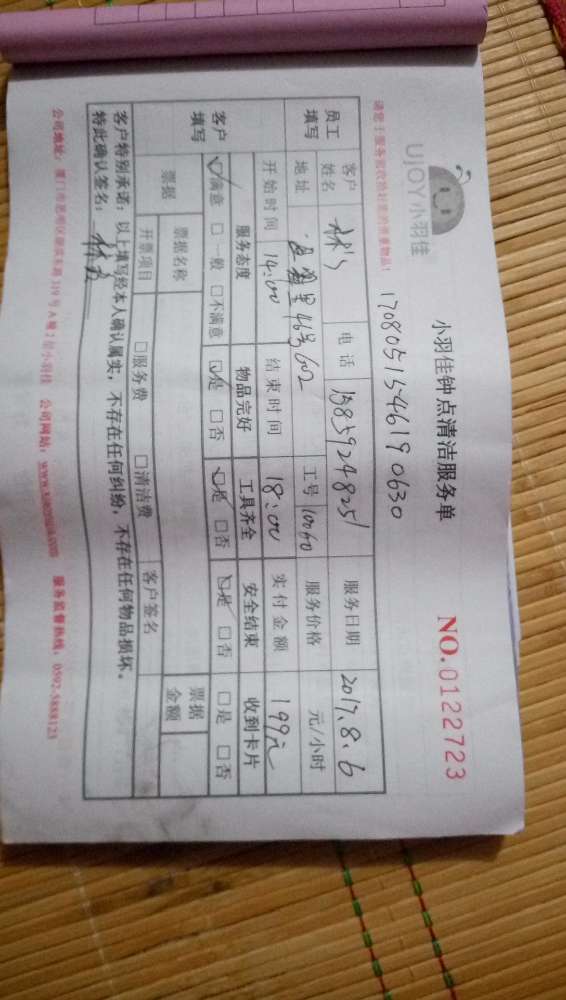 UJOY小羽佳
小羽佳钟点清洁服务单
NO.0122723
170805154619 0630
请您于服务前收拾好您的贵重物品!
员工填写 客户姓名 林 电话 服务日期 2017.8.6
地址 46号602 工号 10060 服务价格 元/小时
开始时间 14:00 结束时间 18:00 实付金额 199元
客户填写 服务态度 物品完好 工具齐全 安全结束 收到卡片
☑满意 □一般 □不满意 ☑是 □否 ☑是 □否 ☑是 □否 □是 □否
票据 票据名称 票据金额
开票项目 □服务费 □清洁费 客户签名
客户特别承诺:以上填写经本人确认属实,不存在任何纠纷,不存在任何物品损坏。
特此确认签名: 林
公司地址:厦门市思明区 319号A幢2层小羽佳 公司网站: 服务监督热线:0592-5888123